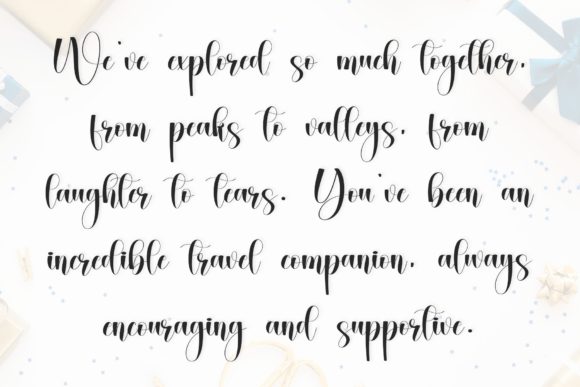 We've explored so much together,
from peaks to valleys, from
laughter to tears. You've been an
incredible travel companion, always
encouraging and supportive.